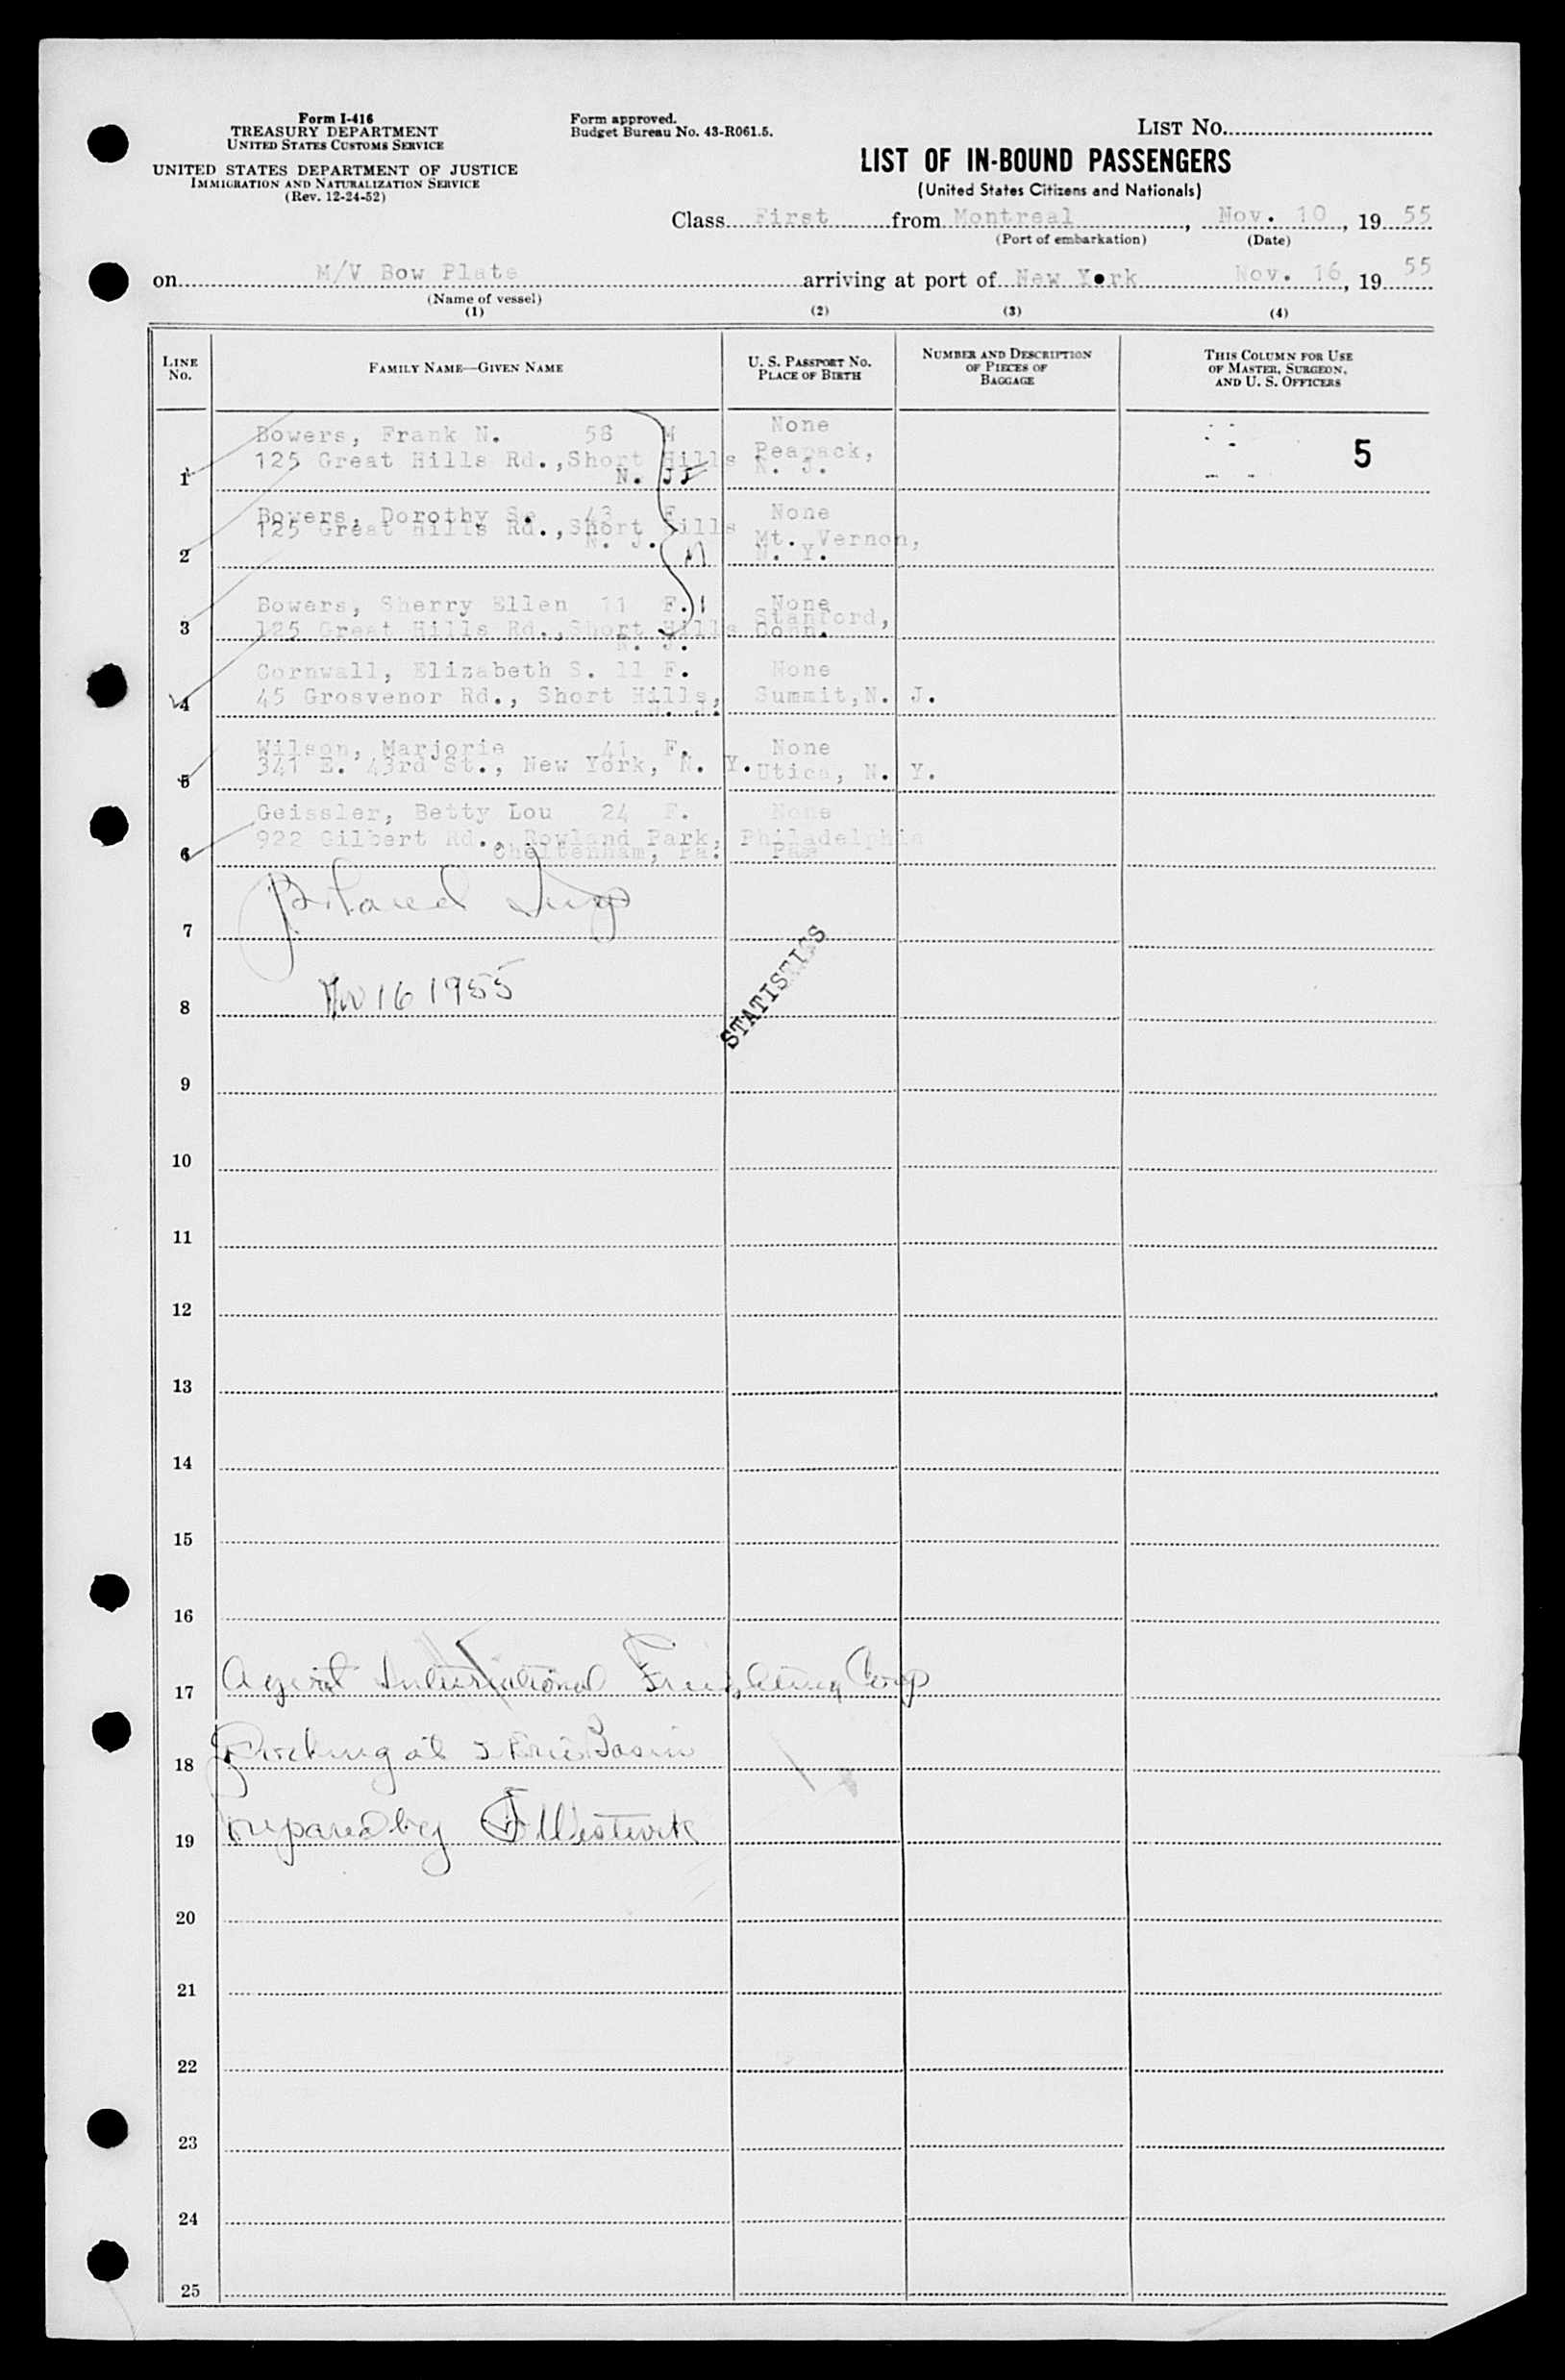 Form I-416
TREASURY DEPARTMENT
UNITED STATES CUSTOMS SERVICE
UNITED STATES DEPARTMENT OF JUSTICE
IMMIGRATION AND NATURALIZATION SERVICE
(Rev. 12-24-52)
Form approved.
Budget Bureau No. 43-R061.5.
LIST NO.
LIST OF IN-BOUND PASSENGERS
(United States Citizens and Nationals)
Class First from Montreal, Nov. 10, 19 55
(Port of embarkation) (Date)
on M/V Bow Plate arriving at port of New York Nov. 16, 19 55
(Name of vessel)
(1) (2) (3) (4)
LINE No.
FAMILY NAME—GIVEN NAME
U. S. PASSPORT NO.
PLACE OF BIRTH
NUMBER AND DESCRIPTION
OF PIECES OF
BAGGAGE
THIS COLUMN FOR USE
OF MASTER, SURGEON,
AND U. S. OFFICERS
Bowers, Frank N. 58 M None
125 Great Hills Rd.,Short Hills Peapack, 5
1 N. J. N. J.
Bowers, Dorothy S. 43 F. None
125 Great Hills Rd.,Short Hills Mt. Vernon,
2 N. J. N. Y.
Bowers, Sherry Ellen 11 F. None
3 125 Great Hills Rd.,Short Hills Stanford, Conn.
N. J.
Cornwall, Elizabeth S. 11 F. None
4 45 Grosvenor Rd., Short Hills, Summit,N. J.
N. J.
Wilson, Marjorie 41 F. None
5 341 E. 43rd St., New York, N. Y. Utica, N. Y.
Geissler, Betty Lou 24 F. None
922 Gilbert Rd., Rowland Park, Philadelphia
6 Cheltenham, Pa. Pa.
7
STATISTICS
8 Nov 16 1955
9
10
11
12
13
14
15
16
17 Agent International Freighting Corp
18 Docking at Erie Basin
19 prepared by
20
21
22
23
24
25